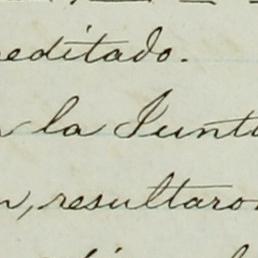 reditado.
la Junt
n, resultaro